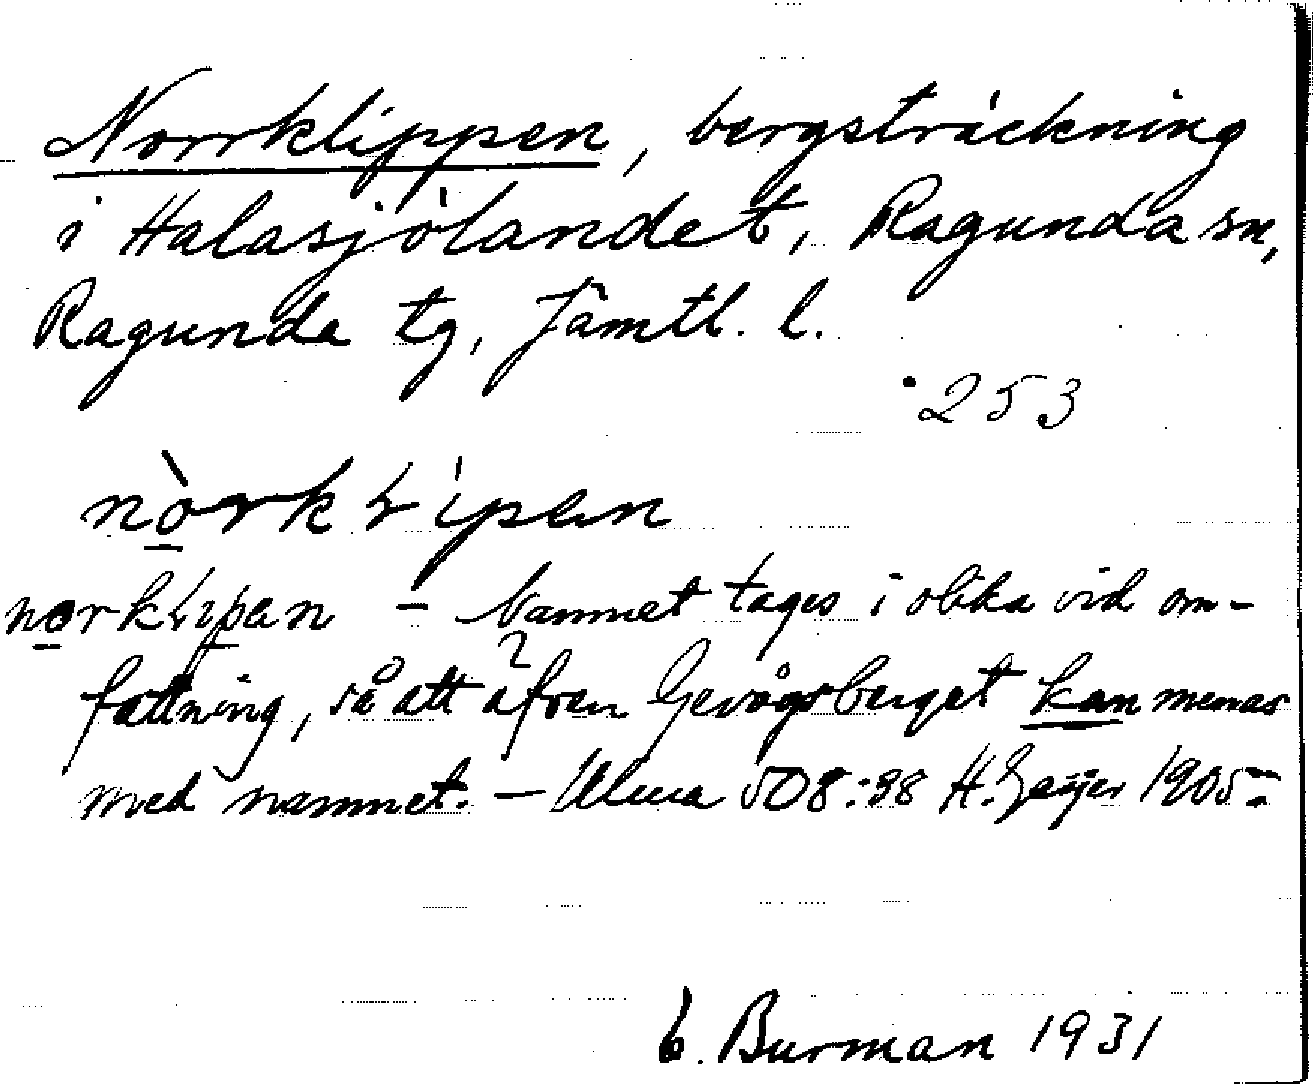 Norrklippen, bergsträckning
i Halasjölandet, Ragunda sn,
Ragunda tg, Jämtl. l.
253
nòrkłipan
norkłipan – Namnet tages i olika vid om-
fattning, så att även Gevågsberget kan menas
med namnet. – Ulma 508:38 H. Geijer 1905 –
E. Burman 1931